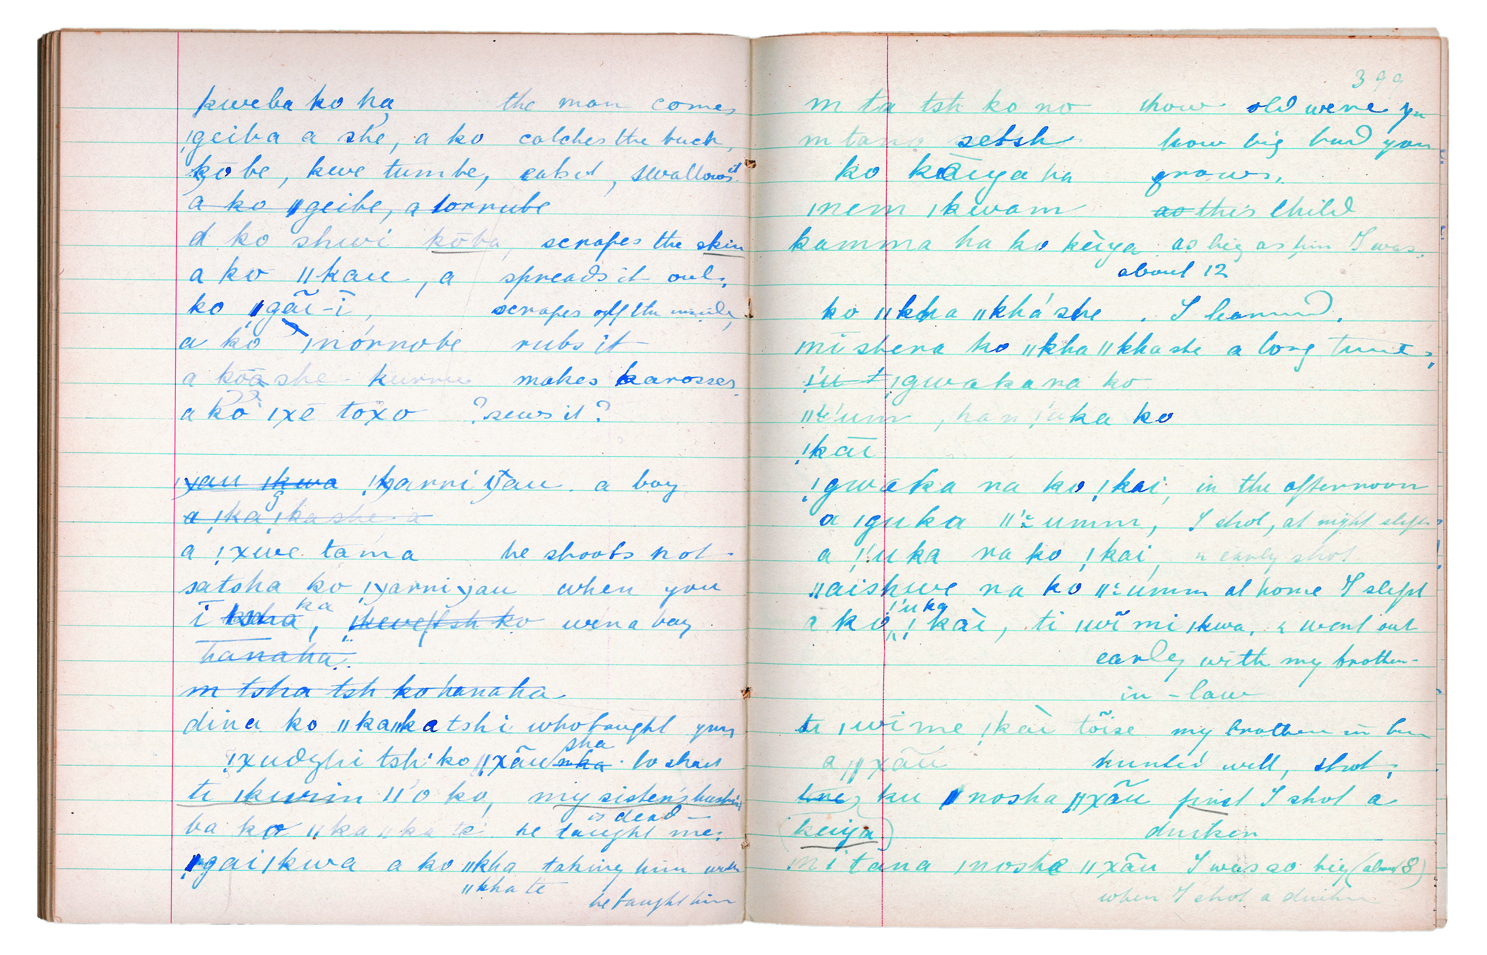 kweba ko ha the man comes
ǃgeiba a she, a ko catches the buck,
kō be, kwe tumbe, eats it, swallows it
a ko ǁgeibe, a torrube
d ko shwi kōba, scrapes the skin
a ko ǁkau, a spreads it out,
ko ǁgãi-ī, scrapes off the inside,
a ko ǀnórrobe rubs it
a kōa she kurru makes karosses
a ko ǀxē tōxo ? sews it ?
ǃkarri ǀxau a boy
a ǃka ǃkashe a
a ǃxwe tama he shoots not
satsha ko ǃxarri xau when you
ī ka, were a boy
hanaha
m tsha tsh ko hanaha
dina ko ǁkaǁka tshi who taught you
sha
ǃxudghi tshi ko ǁxāu nka to shoot
ti ǀkwiin ǁ'o ko, my sister's husband
is dead
ba ko ǁkaǁka te he taught me,
ǃgaiǀkwa a ko ǁkha taking him with
ǁkha te he taught him
399
m ta tsh ko no how old were you
m tana setsh how big had you
ko kāiya ha grown,
ǀnem ǀkwam this child
kamma ha ko kēiya as big as him I was
about 12
ko ǁkha ǁkhá she . I learned.
mi shera ko ǁkhaǁkhashe a long time,
ǀgwakana ko
ǁ'um, han ǃ'uka ko
ǃkāī
ǃgwaka na ko ǃkai, in the afternoon
a ǀguka ǁ'umm, I shot, at night slept
a ǃ'uka na ko ǃkai, early shot
ǁaishwe na ko ǁ'umm at home I slept
ǃ'uka
a ko ǃkài, ti ǀwī mi ǀkwa, I went out
early with my brother-
in-law
ti ǀwi me ǃkài tõise my brother in law
a ǁxāu hunted well, shot,
tne ku ǀnosha ǁxāu first I shot a
(keiya) duiker
mi tana ǀnoshe ǁxāu I was so big (about 8)
when I shot a duiker